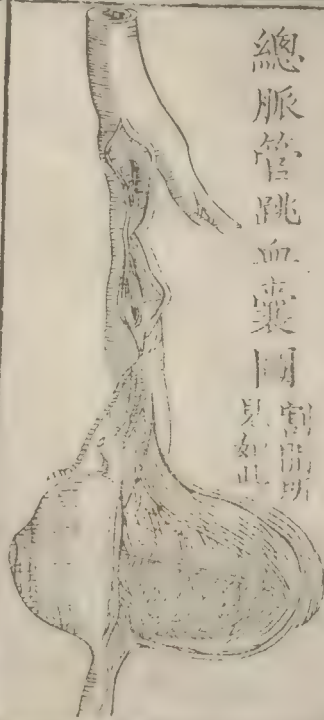 總脈管跳血囊圖
割開
見如此